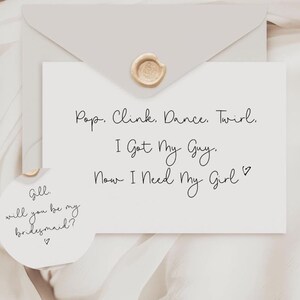 Pop, Clink, Dance, Twirl,
I Got My Guy,
Now I Need My Girl
Gill
will you be my
bridesmaid?